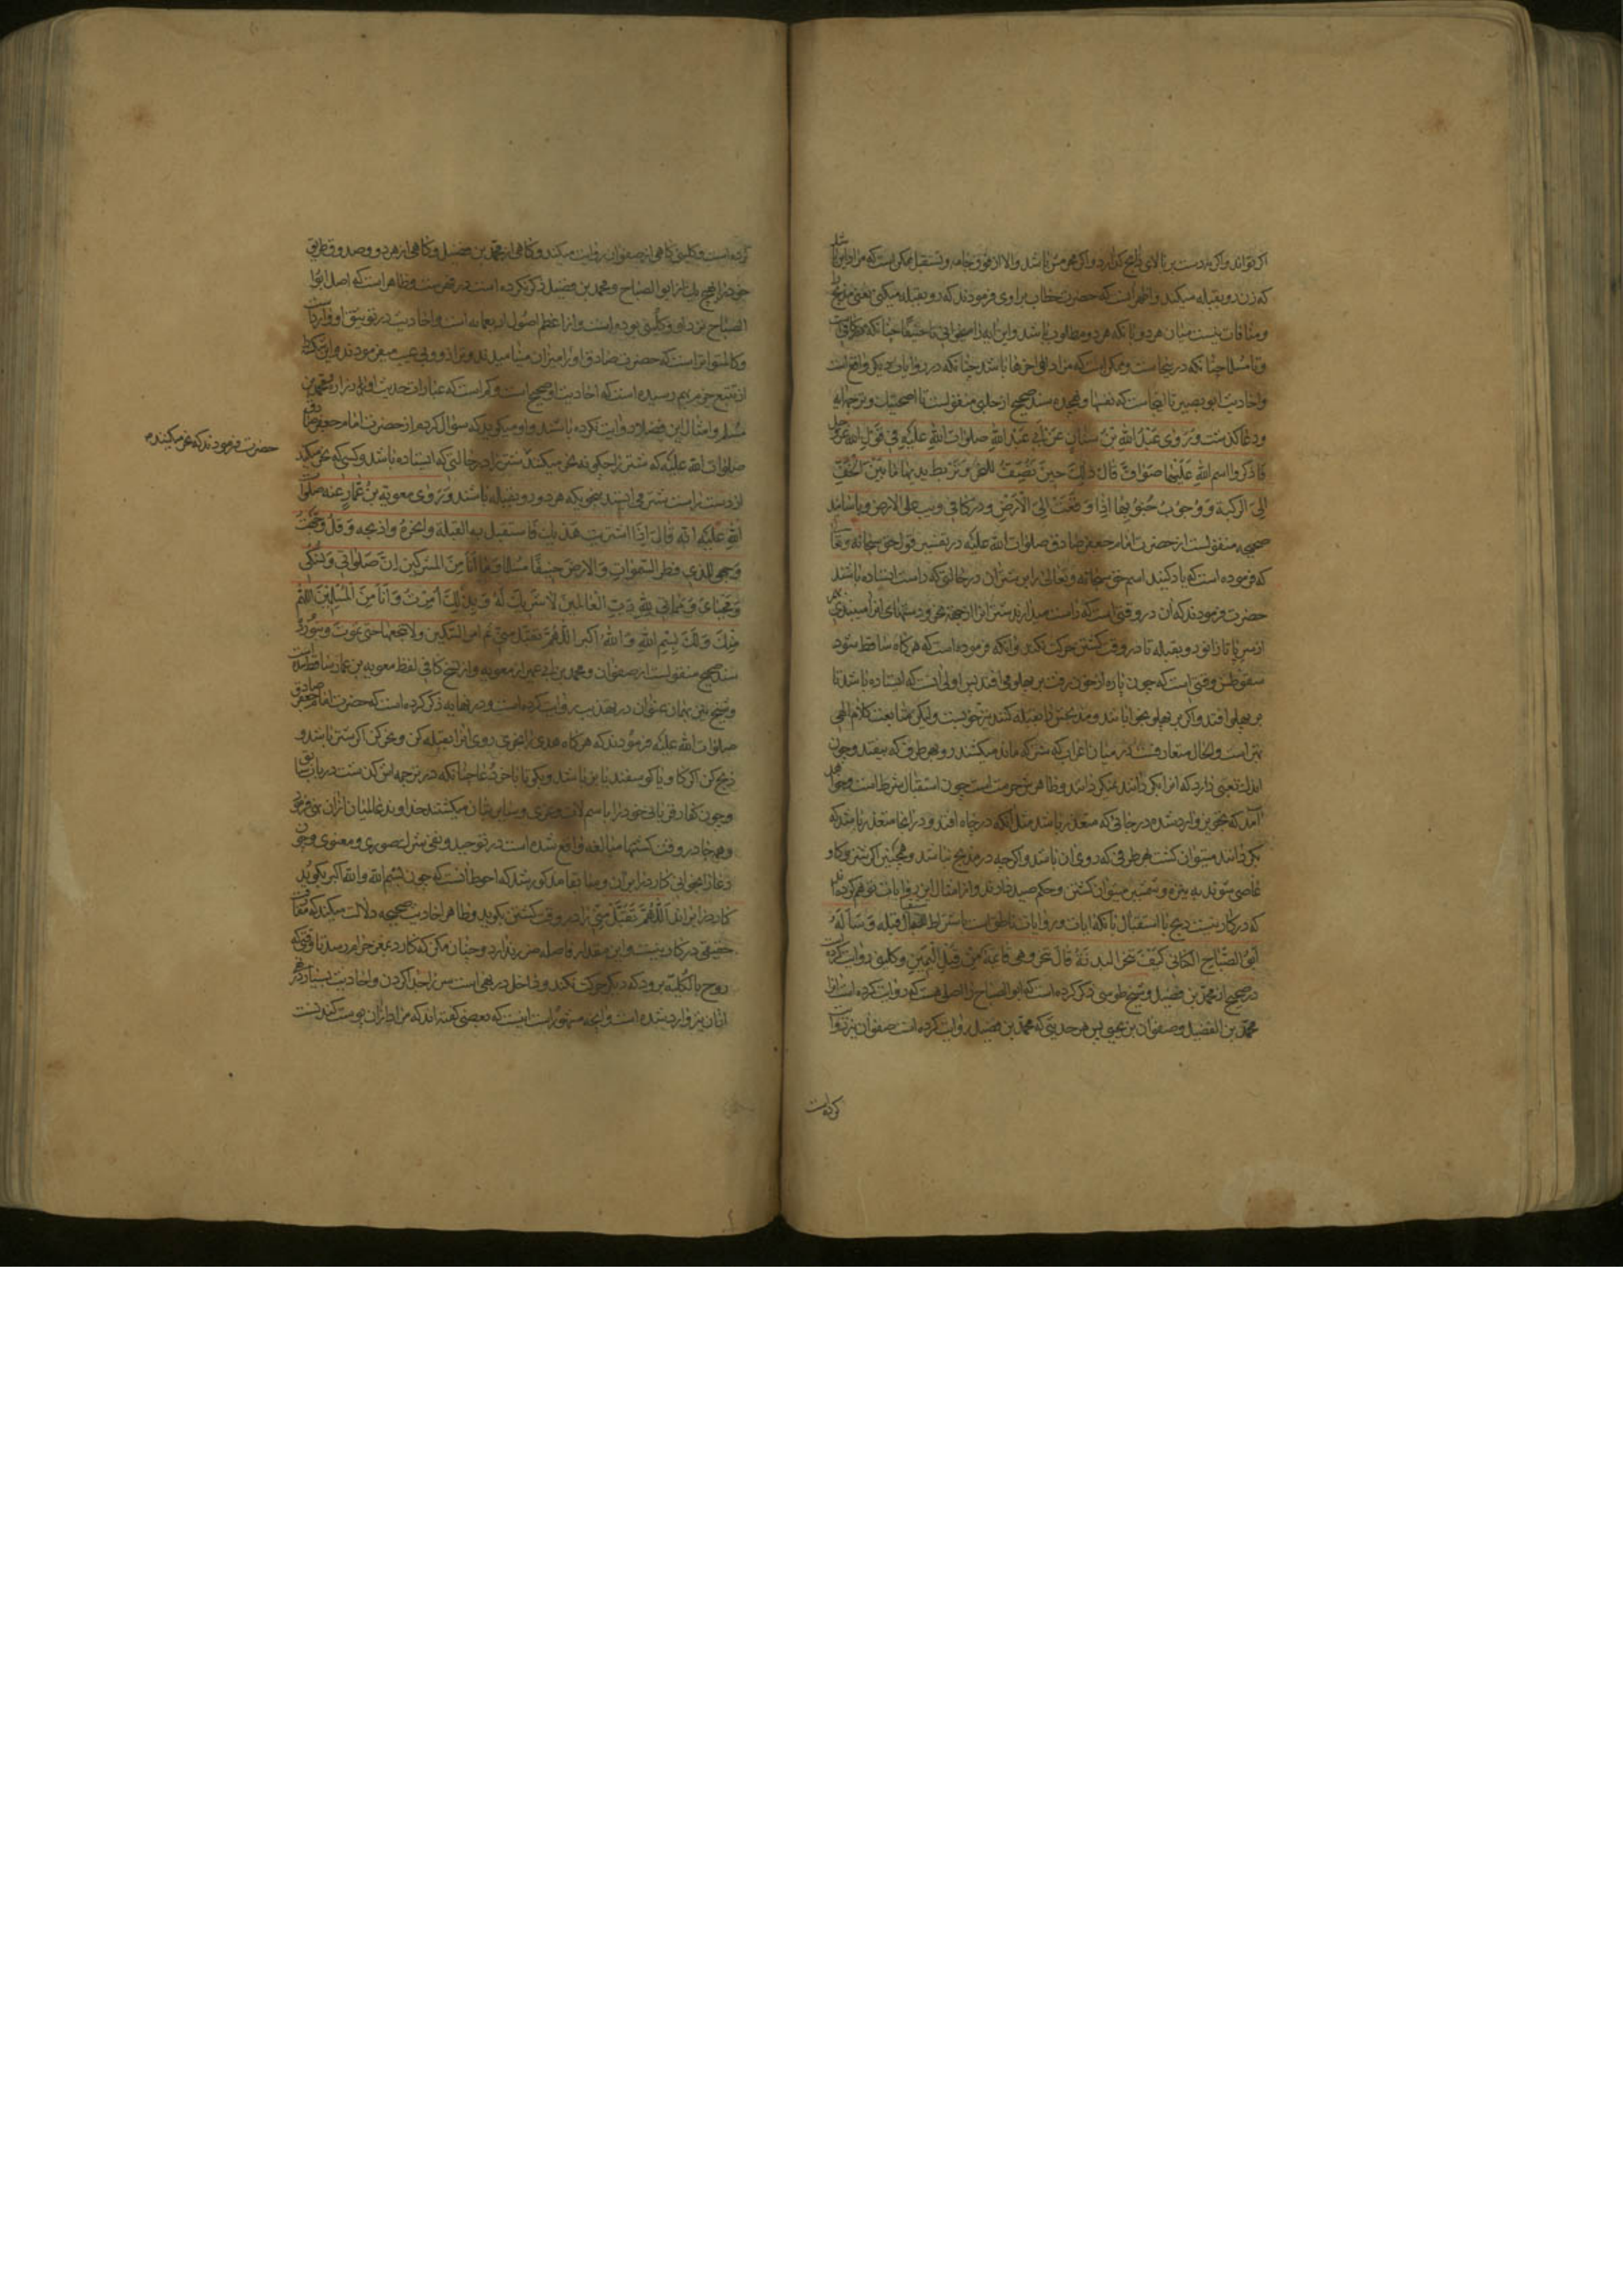 اکر تواند و اکر نه دست بر بالای ذابح کذارد و اکر محرمش باشد و الا از فوق جامه و تستقبل ممکن است که مراد این باشد
که زن رو بقبله میکند و اظهر انست که حضرت خطاب براوی فرمودند که رو بقبله میکنی یعنی مذبح را
و منافات نیست میان هر دو بانکه هر دو مطلوب باشد و این ایه را میخوانی تا حنیفا چنانکه
و یا مسلما چنانکه در اینجاست و ممکن است که مراد تا اخرها باشد چنانکه در روایات دیکر واقع است
و احادیث ابو بصیر تا اینجاست که نفسها و هجده سند صحیح از حلبی منقولست تا اضحیتک و ترجمه ایه
و دعا کذشت و روی عبد الله بن سنان عن ابی عبد الله صلوات الله علیه فی قول الله عز و جل
فاذکروا اسم الله علیها صواف قال ذلک حین تصف للنحر و تربط یدیها ما بین الخف
الی الرکبة و وجوب جنوبها اذا وقعت الی الارض و در کافی و یب علی الارض و باسانید
صحیحه منقولست از حضرت امام جعفر صادق صلوات الله علیه در تفسیر قول حق سبحانه و تعالی
که فرموده است که یاد کنید اسم حق سبحانه و تعالی را بر شتران در حالتی که راست ایستاده باشند
حضرت فرمودند که ان در وقتی است که راست میدارند شتر انرا از جهة نحر و دستهای انرا میبندی
از سر پا تا زانو رو بقبله تا در وقت کشتن حرکت نکند و انکه فرموده است که هرکاه ساقط شود
سقوطش وقتی است که چون پاره از خون رفت بر پهلو می افتد پس اولی انست که ایستاده باشد تا
بر پهلو افتد و اکر بر پهلو بخوابانند و مذبحش را بقبله کنند نیز خوبست و لیکن متابعت کلام الهی
بهتر است و الحال متعارفست در میان اعراب که شتر که ماند میکشند رو بهر طرف که بیفتد و چون
اندک تعبی دارد که انرا بکردانند نمیکردانند و ظاهرش حرمت است چون استقبال شرط است و
آمد که نحو نیز وارد شده در جائی که متعذر باشد مثل آنکه در چاه افتد و در انجا متعذر باشد که
بکردانند میتوان کشت هر طرفی که روی ان باشد و اکر چه در مذبح نباشد و همچنین اکر شتر و کاو
عاصی شوند به نیزه و شمشیر میتوان کشتن و حکم صید دارند و از امثال این روایات توهم کرده اند
که در کار نیست ذبح با استقبال با آنکه ایات و روایات ناطق است باشتراط استقبال قبله و ساله
ابو الصباح الکنانی کیف تنحر البدنة قال تنحر و هی قائمة من قبل الیمین و کلینی روایت کرده
در صحیح از محمد بن فضیل و شیخ طوسی ذکر کرده است که ابو الصباح را اصلی هست که روایت کرده است انرا
محمد بن الفضیل و صفوان بن یحیی پس هر حدیثی که محمد بن فضیل روایت کرده است صفوان نیز روایت
کرده است
کرده است و کلینی کاهی از صفوان روایت میکند و کاهی از محمد بن فضیل و کاهی از هر دو و صدوق طریق
خود را از هیچ یک از ابو الصباح و محمد بن فضیل ذکر نکرده است در فهرست و ظاهر است که اصل ابو
الصباح نزد او و کلینی بوده است و از اعظم اصول اربعمائه است و احادیث در توثیق او وارد است
و کالمتواتر است که حضرت صادق او را میزان مینامیدند و ترازوی بی عیب میفرمودند و این شکسته را
از تتبع جزم بهم رسیده است که احادیث او صحیح است و کم است که عبارات حدیث او را زراره و محمد بن
مسلم و امثال این فضلا روایت نکرده باشند و او میکوید که سؤال کردم از حضرت امام جعفر صادق
صلوات الله علیه که شتر را چکونه نحر میکنند شتر را در حالتی که ایستاده باشد و کسی که نحر میکند
حضرت فرمودند که نحر میکنند
از دست راست شتر می ایستد بنحویکه هر دو رو بقبله باشند و روی معویة بن عمار عنه صلوات
الله علیه انه قال اذا اشتریت هدیک فاستقبل به القبلة و انحره و اذبحه و قل وجهت
وجهی للذی فطر السموات و الارض حنیفا مسلما و ما انا من المشرکین ان صلواتی و نسکی
و محیای و مماتی لله رب العالمین لا شریک له و بذلک امرت و انا من المسلمین اللهم
منک و لک بسم الله و الله اکبر اللهم تقبل منی ثم امر السکین و لا تنخعها حتی تموت و
سند صحیح منقولست از صفوان و محمد بن ابی عمیر از معویه و از نسخ کافی لفظ معویه بن عمار ساقط شده است
و شیخ نیز بهمان عنوان در تهذیب روایت کرده است و در نهایه ذکر کرده است که حضرت امام جعفر صادق
صلوات الله علیه فرمودند که هرکاه هدی را بخری روی انرا بقبله کن و نحر کن اکر شتر باشد و
ذبح کن اکر کاو یا کوسفند یا بز باشد و بکو تا باخر دعا چنانکه در ترجمه اش کذشت در باب
و چون کفار قربانی خود را باسم لات و عزی و سایر بتان میکشتند خداوند عالمیان ازان نهی فرمود
و همه جا در وقت کشتنها مبالغه واقع شده است در توحید و نفی شرک صوری و معنوی و چون
دعا را بخوانی کارد را بران و سابقا مذکور شد که احوط انست که چون بسم الله و الله اکبر بکوید
کارد را براند اللهم تقبل منی را در وقت کشتن بکوید و ظاهر احادیث صحیحه دلالت میکند که مقارنت
حقیقی در کار نیست و این مقدار فاصله ضرر ندارد و چنان مکن که کارد بمغز حرام رسد تا وقتی که
روح بالکلیه برود که دیکر حرکت نکند و داخل در نهی است سر را جدا کردن و احادیث بسیار دیکر
ازان نیز وارد شده است و انچه مشهور است اینست که بعضی کفته اند که مراد ازان پوست کندنست